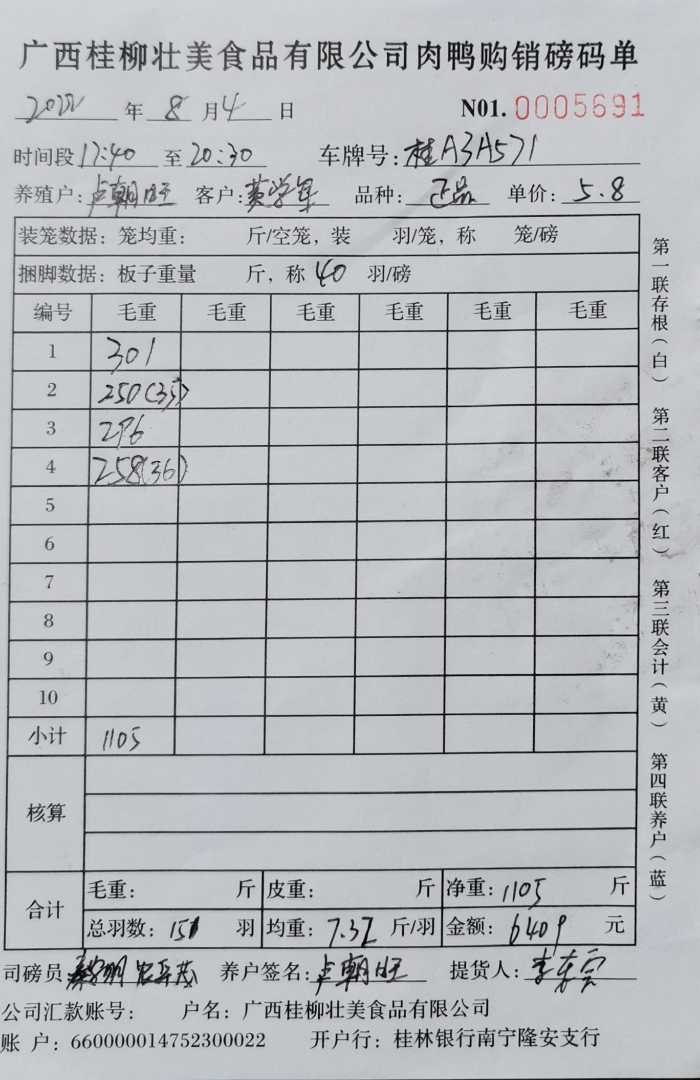 广西桂柳壮美食品有限公司肉鸭购销磅码单
2022 年 8 月 4 日 N01. 0005691
时间段 17:40 至 20:30 车牌号: 桂A3A571
养殖户: 卢朝旺 客户: 黄学军 品种: 正品 单价: 5.8
装笼数据: 笼均重: 斤/空笼, 装 羽/笼, 称 笼/磅
捆脚数据: 板子重量 斤, 称 40 羽/磅
编号 毛重 毛重 毛重 毛重 毛重 毛重
1 301
2 250(35)
3 296
4 258(36)
5
6
7
8
9
10
小计 1105
核算
合计 毛重: 斤 皮重: 斤 净重: 1105 斤
总羽数: 151 羽 均重: 7.32 斤/羽 金额: 6409 元
司磅员 养户签名: 卢朝旺 提货人:
公司汇款账号: 户名: 广西桂柳壮美食品有限公司
账 户: 660000014752300022 开户行: 桂林银行南宁隆安支行
第一联存根(白) 第二联客户(红) 第三联会计(黄) 第四联养户(蓝)